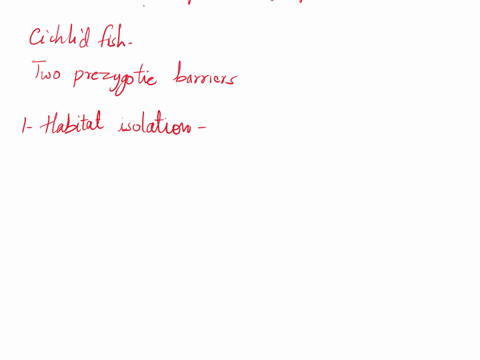 Cichlid fish.
Two prezygotic barriers
1- Habitat isolation -